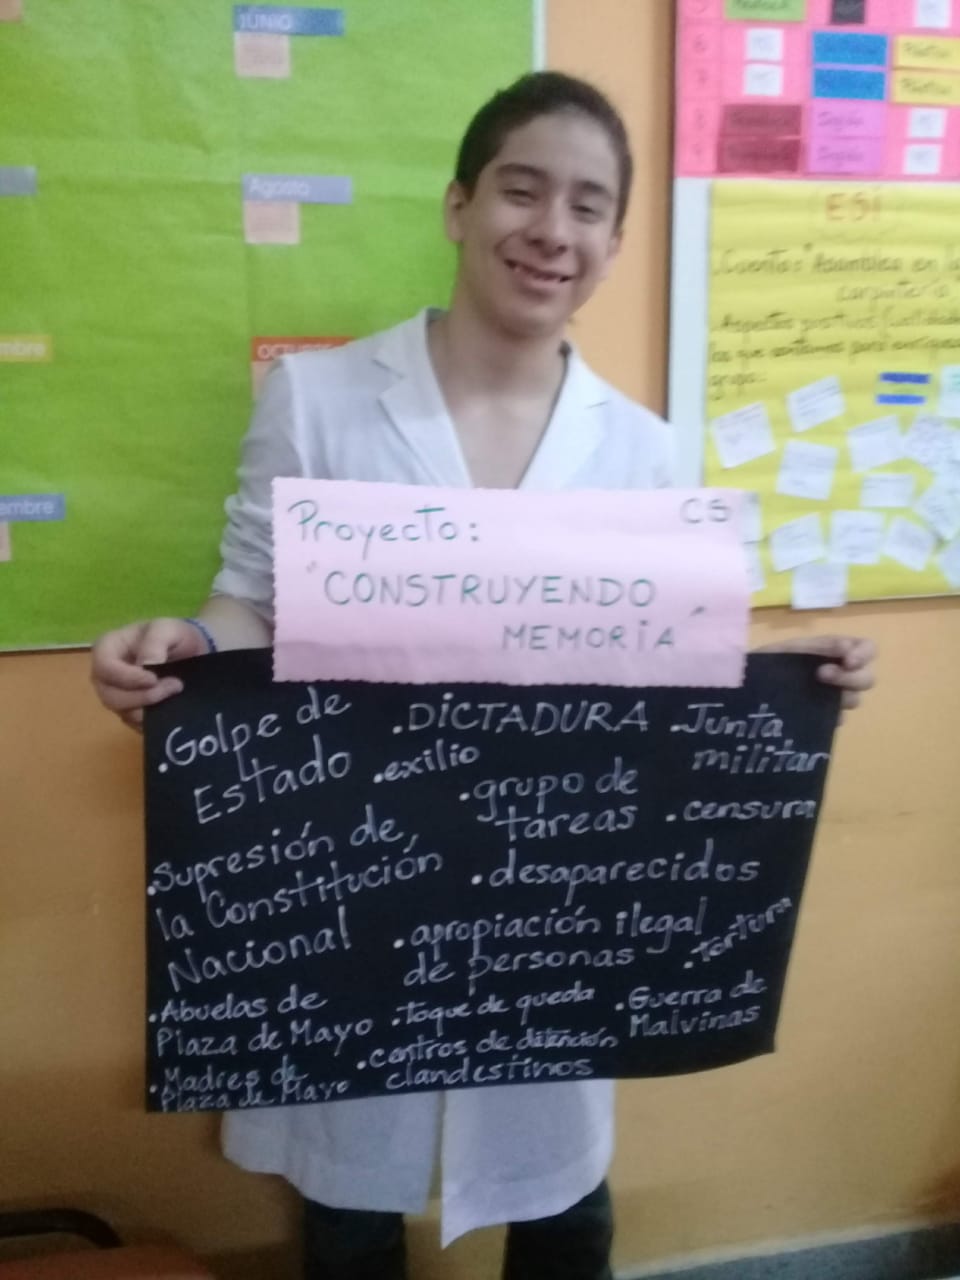 JUNIO
Agosto
mbre
OCTUBRE
embre
ESI
Cuento: "Asamblea en la
carpintería
Aspectos positivos (cualidades
grupo:
Proyecto:
CS
"CONSTRUYENDO
MEMORIA"
.Golpe de
Estado
.DICTADURA
.Junta
militar
.exilio
.grupo de
tareas
.censura
.Supresión de
la Constitución
Nacional
.desaparecidos
.apropiación ilegal
de personas
.tortura
.Abuelas de
Plaza de Mayo
.Toque de queda
.Guerra de
Malvinas
.Madres de
Plaza de Mayo
.centros de detención
clandestinos